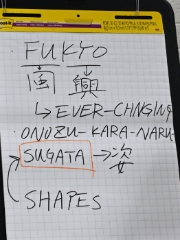 FUKYO
風 興
↳ EVER-CHNGING
ONOZU-KARA-NARU-
SUGATA → 姿
SHAPES